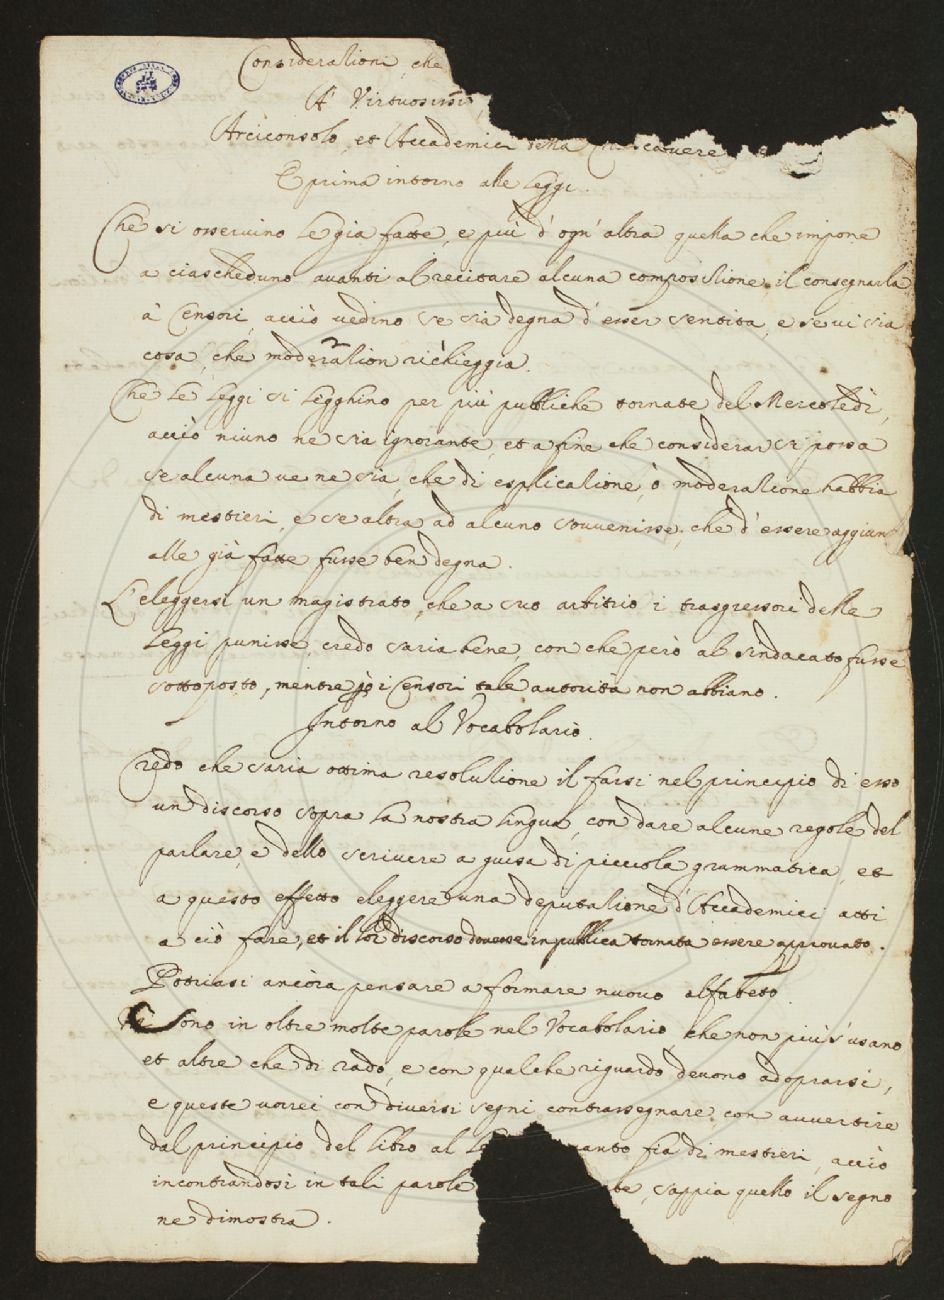 Considerazioni, che
A' Virtuosissi
Arciconsolo, et Accademici della Crusca
E prima intorno alle Leggi.
Che si osservino le già fatte, e più d'ogn'altra quella che impone
a ciascheduno avanti al recitare alcuna composizione, il consegnarla
a' Censori, acciò vedino se sia degna d'esser sentita, e se vi sia
cosa, che moderazion richieggia.
Che le Leggi si legghino per più publiche tornate del Mercoledì,
acciò niuno ne sia ignorante, et a fine che considerar si possa
se alcuna ve ne sia, che di esplicazione, ò moderazione habbia
di mestieri, e se altra ad alcuno sovvenisse, che d'essere aggiun
alle già fatte fusse ben degna.
L'eleggersi un magistrato, che a suo arbitrio i trasgressori delle
Leggi punisse, credo saria bene, con che però al sindacato fusse
sottoposto, mentre i Censori tale autorità non abbiano.
Intorno al Vocabolario.
Credo che saria ottima resoluzione il farsi nel principio di esso
un discorso sopra la nostra lingua, con dare alcune regole del
parlare, e dello scrivere a guisa di piccola grammatica, et
a questo effetto eleggere una deputazione d'Accademici atti
a ciò fare, et il lor discorso dovesse in publica tornata essere approvato.
Potriasi ancòra pensare a formare nuovo alfabeto.
Sono in oltre molte parole nel Vocabolario, che non più s'usano
et altre che di rado, e con qualche riguardo devono adoprarsi,
e queste vorrei con diversi segni contrassegnare, con avvertire
dal principio del libro al Le anto fia di mestieri, acciò
incontrandosi in tali parole te, sappia quello il segno
ne dimostra.